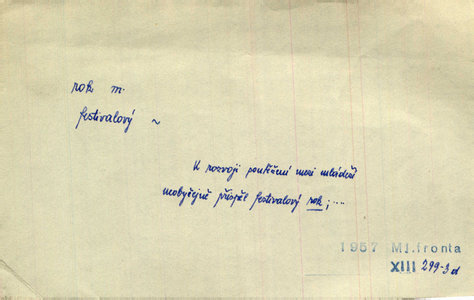 rok m.
festivalový ~
K rozvoji potěšení mezi mládeží
neobyčejně přispěl festivalový rok; ...
1957 Ml.fronta
XIII 299-3d